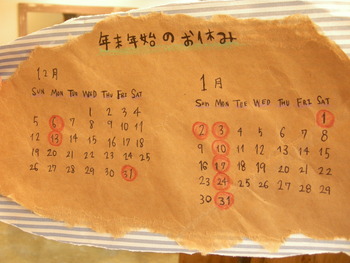 年末年始のお休み
12月
SUN MON TUE WED THU FRI SAT
1 2 3 4
5 6 7 8 9 10 11
12 13 14 15 16 17 18
19 20 21 22 23 24 25
26 27 28 29 30 31
1月
SUN MON TUE WED THU FRI SAT
1
2 3 4 5 6 7 8
9 10 11 12 13 14 15
16 17 18 19 20 21 22
23 24 25 26 27 28 29
30 31